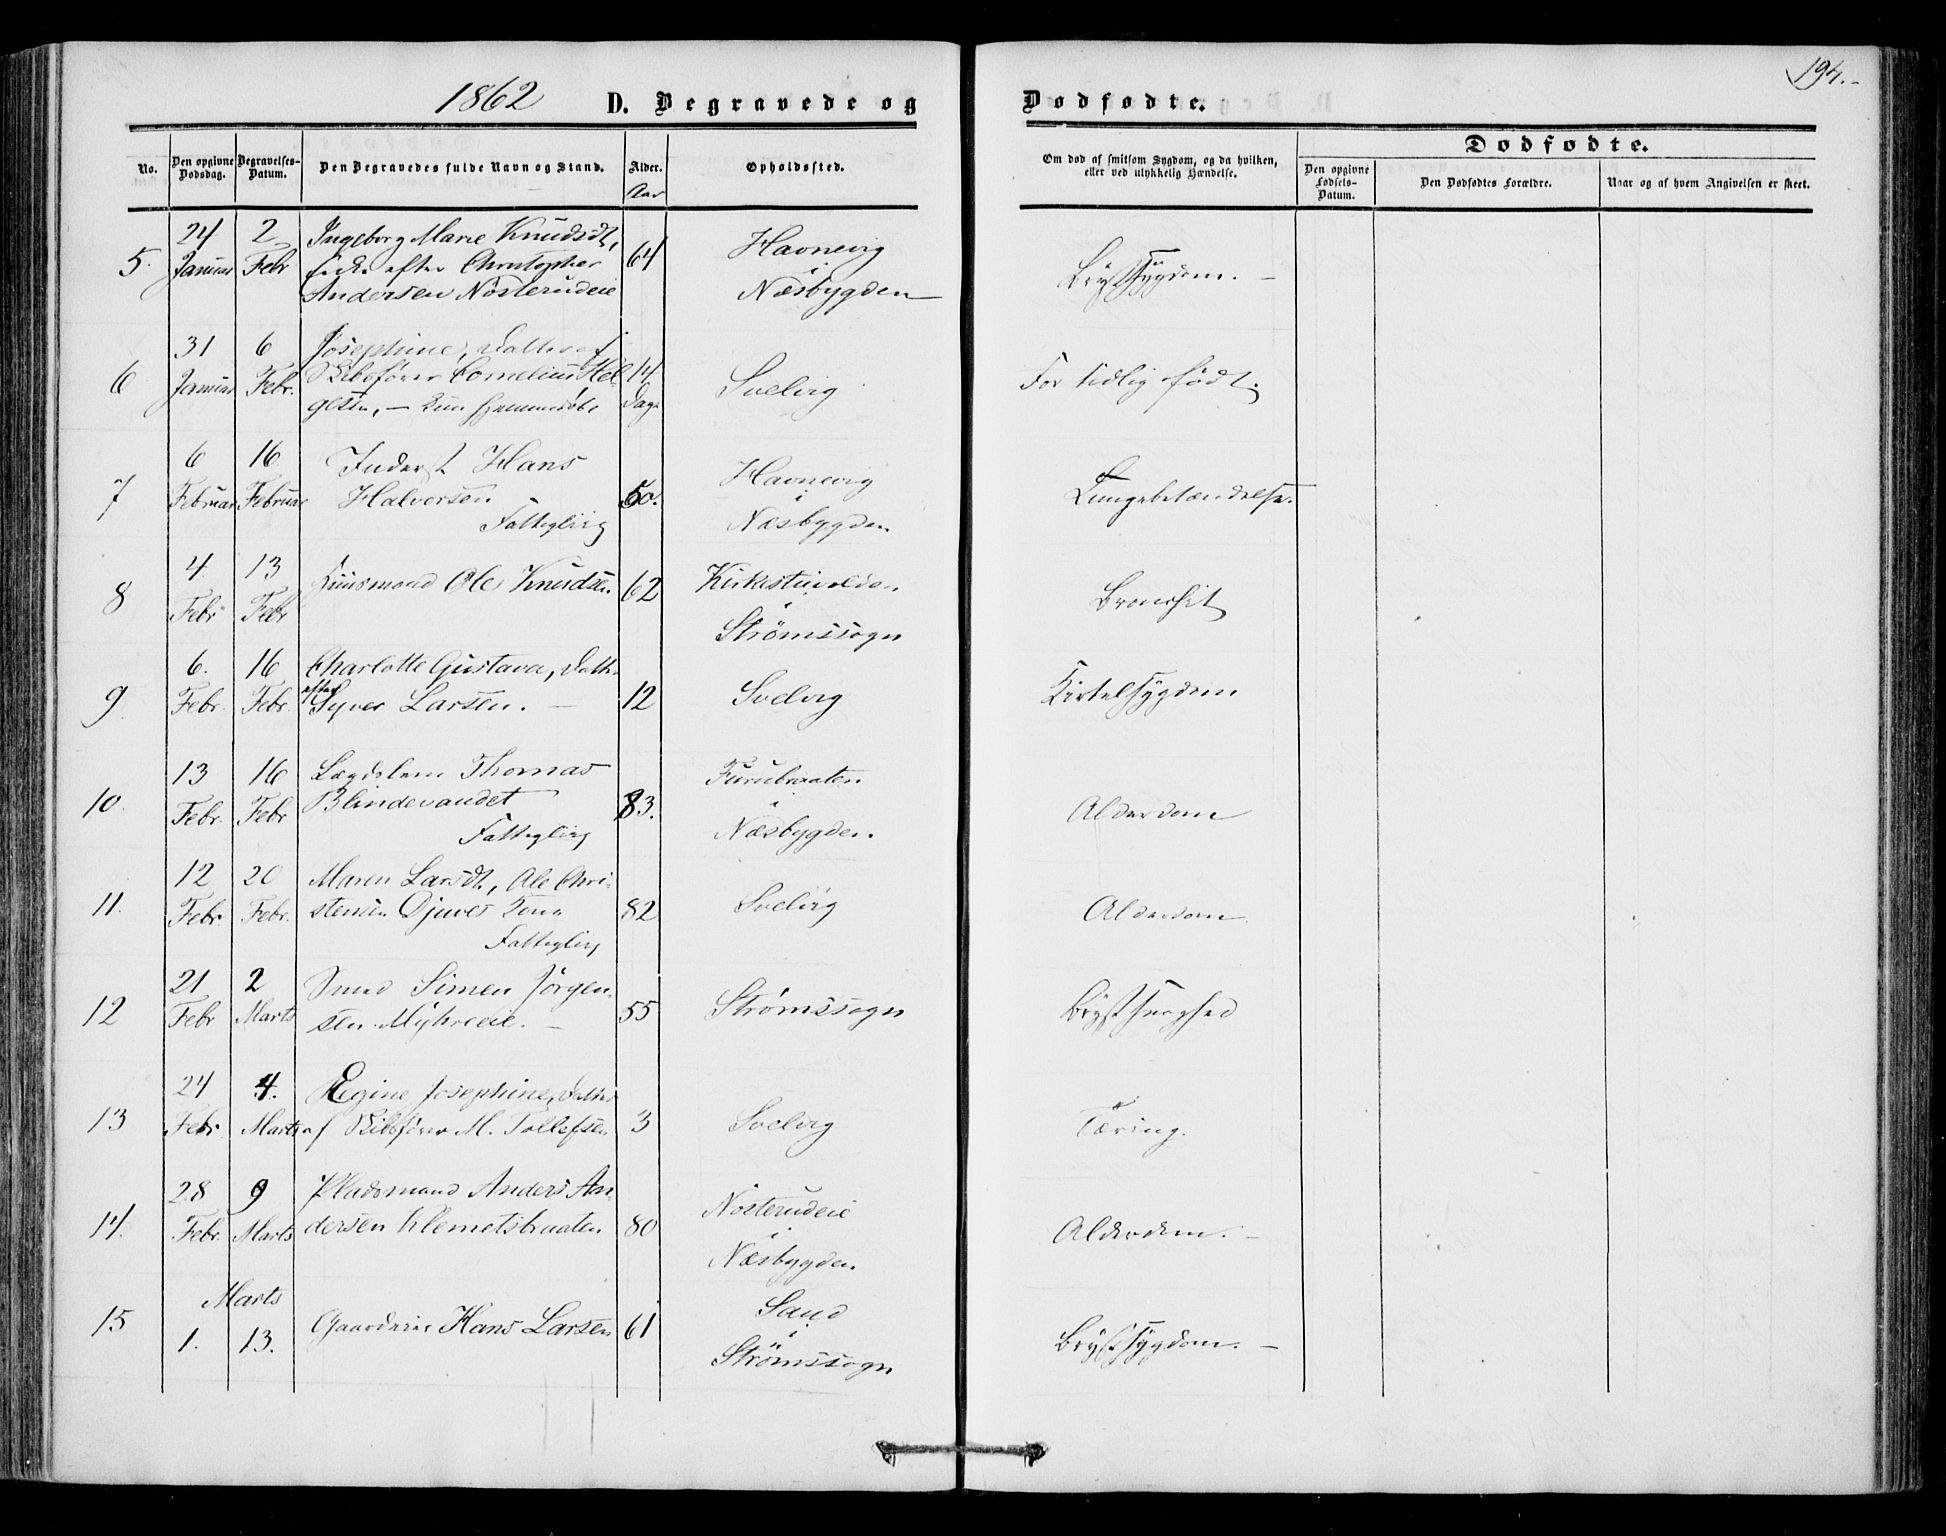 194.-
1862 D. Begravede og Dødfødte.
No. Den opgivne Dødsdag. Begravelses-Datum. Den Begravedes fulde Navn og Stand. Alder. Opholdssted. Om død af smitsom Sygdom, og da hvilken, eller ved ulykkelig Hændelse. Dødfødte.
Den opgivne Fødsels-Datum. Den Dødfødtes Forældre. Naar og af hvem Angivelsen er skeet.
Aar
24 2 Ingeborg Marie Knudsdt, Havnevig
5. Januar Febr Enke efter Christopher 64 i Brystsygdom. -
Andersen Nösterudeie Næsbygden
31 6 Josephine, Datter af
6 Januar Febr. Skibsfører Cornelius Hel 14 Svelvig For tidlig født.
gesen, - kun hjemmedøbt Dage
6 16 Inderst Hans Havnevig
7 Februar Februar Halvorsen 60. i Lungebetændelse.
Fattiglig Næsbygden
4 13 Huusmand Ole Knudsen 62 Kirkestuvolden
8 Febr Febr i Bronchit
Strømssogn
6. 16 Charlotte Gustava, Datter
9 Febr. Febr. efter Syver Larsen. - 12 Svelvig Kirtelsygdom
13 16 Lægdslem Thomas Furubraaten
10. Febr. Febr Blindevandet 83. i Alderdom
Fattiglig Næsbygden.
12 20 Maren Larsdt, Ole Chri-
11. Febr. Febr. stensen Djuves Kone 82 Svelvig Alderdom
Fattiglig
21 2 Smed Simen Jörgen-
12 Febr Marts sen Myhreeie. - 55 Strømssogn Brystsvaghed
24 4. Regine Josephine, Datter
13 Febr. Marts af Skibsfører M. Tollefsen 3 Svelvig Tæring.
28 9 Pladsmand Anders An- Nösterudeie
14. Febr. Marts dersen Klemetsbraaten 80 i Alderdom. -
Næsbygden
Marts Sand
15 Gaardeier Hans Larsen 61 i
1. 13. Strømssogn Brystsygdom. -